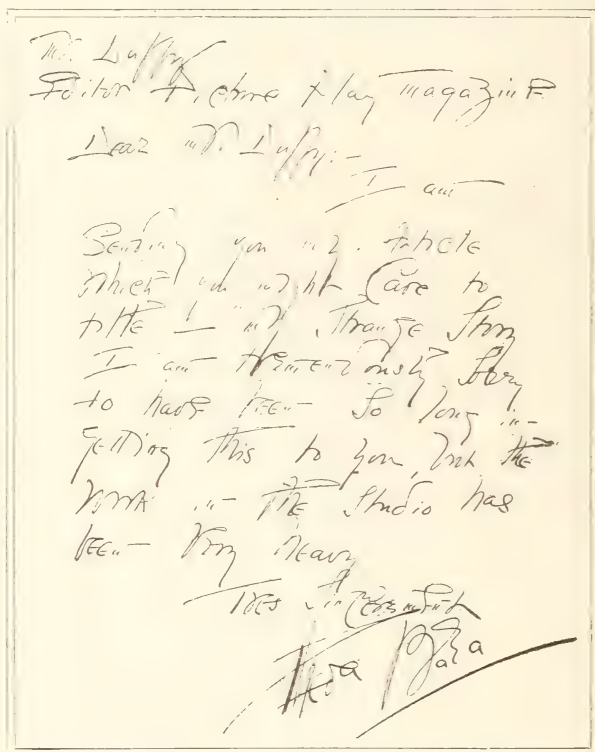 Mr. Duffy
Editor Picture Play Magazine
Dear Mr. Duffy:-
I am
Sending you my article
which you might Care to
title my Strange Story
I am tremendously Sorry
to have been So long in
getting this to you, but the
work in the Studio has
been very heavy
Yours Sincerely
Theda Bara